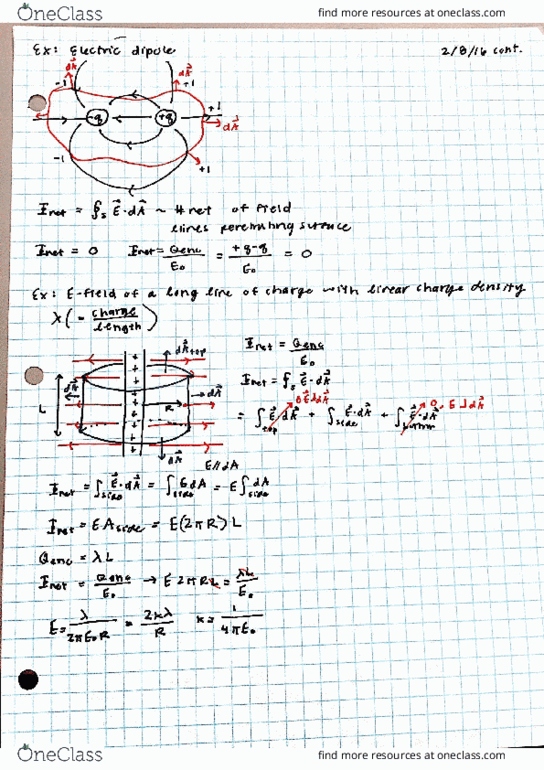 OneClass
find more resources at oneclass.com
Ex: Electric dipole
2/8/16 cont.
dA⃗
dA⃗
-1
+1
+1
-q
+q
dA⃗
-1
+1
Φnet = ∮s E⃗·dA⃗ ~ # net of field
lines penetrating surface
Φnet = 0 Φnet = Qenc/ε₀ = +q-q/ε₀ = 0
Ex: E-field of a long line of charge with linear charge density
λ (= charge/length)
dA⃗top
dA⃗
dA⃗
L
R
dA⃗
Φnet = Qenc/ε₀
Φnet = ∮s E⃗·dA⃗
0 E⃗⊥dA⃗
0 E⊥dA⃗
= ∫top E⃗·dA⃗ + ∫side E⃗·dA⃗ + ∫bottom E⃗·dA⃗
E//dA
Φnet = ∫side E⃗·dA⃗ = ∫side EdA = E∫side dA
Φnet = EAside = E(2πR)L
Qenc = λL
Φnet = Qenc/ε₀ → E2πRL = λL/ε₀
E = λ/2πε₀R = 2kλ/R k = 1/4πε₀
OneClass
find more resources at oneclass.com